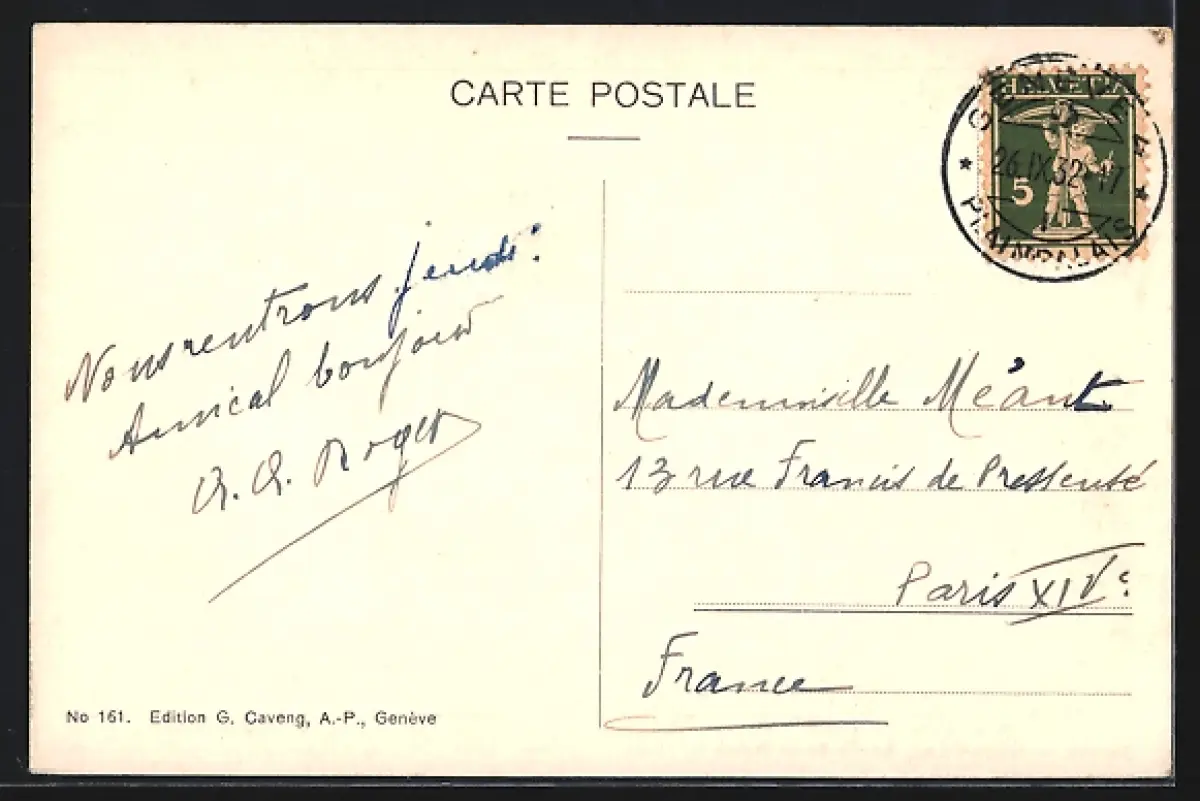 CARTE POSTALE
HELVETIA
5
GENÈVE 4
26.IX.32-17
PLAINPALAIS
Nous rentrons jeudi.
Amical bonjour
Roger
Mademoiselle Méant
13 rue Francis de Pressensé
Paris XIVe
France
No 161. Edition G. Caveng, A.-P., Genève